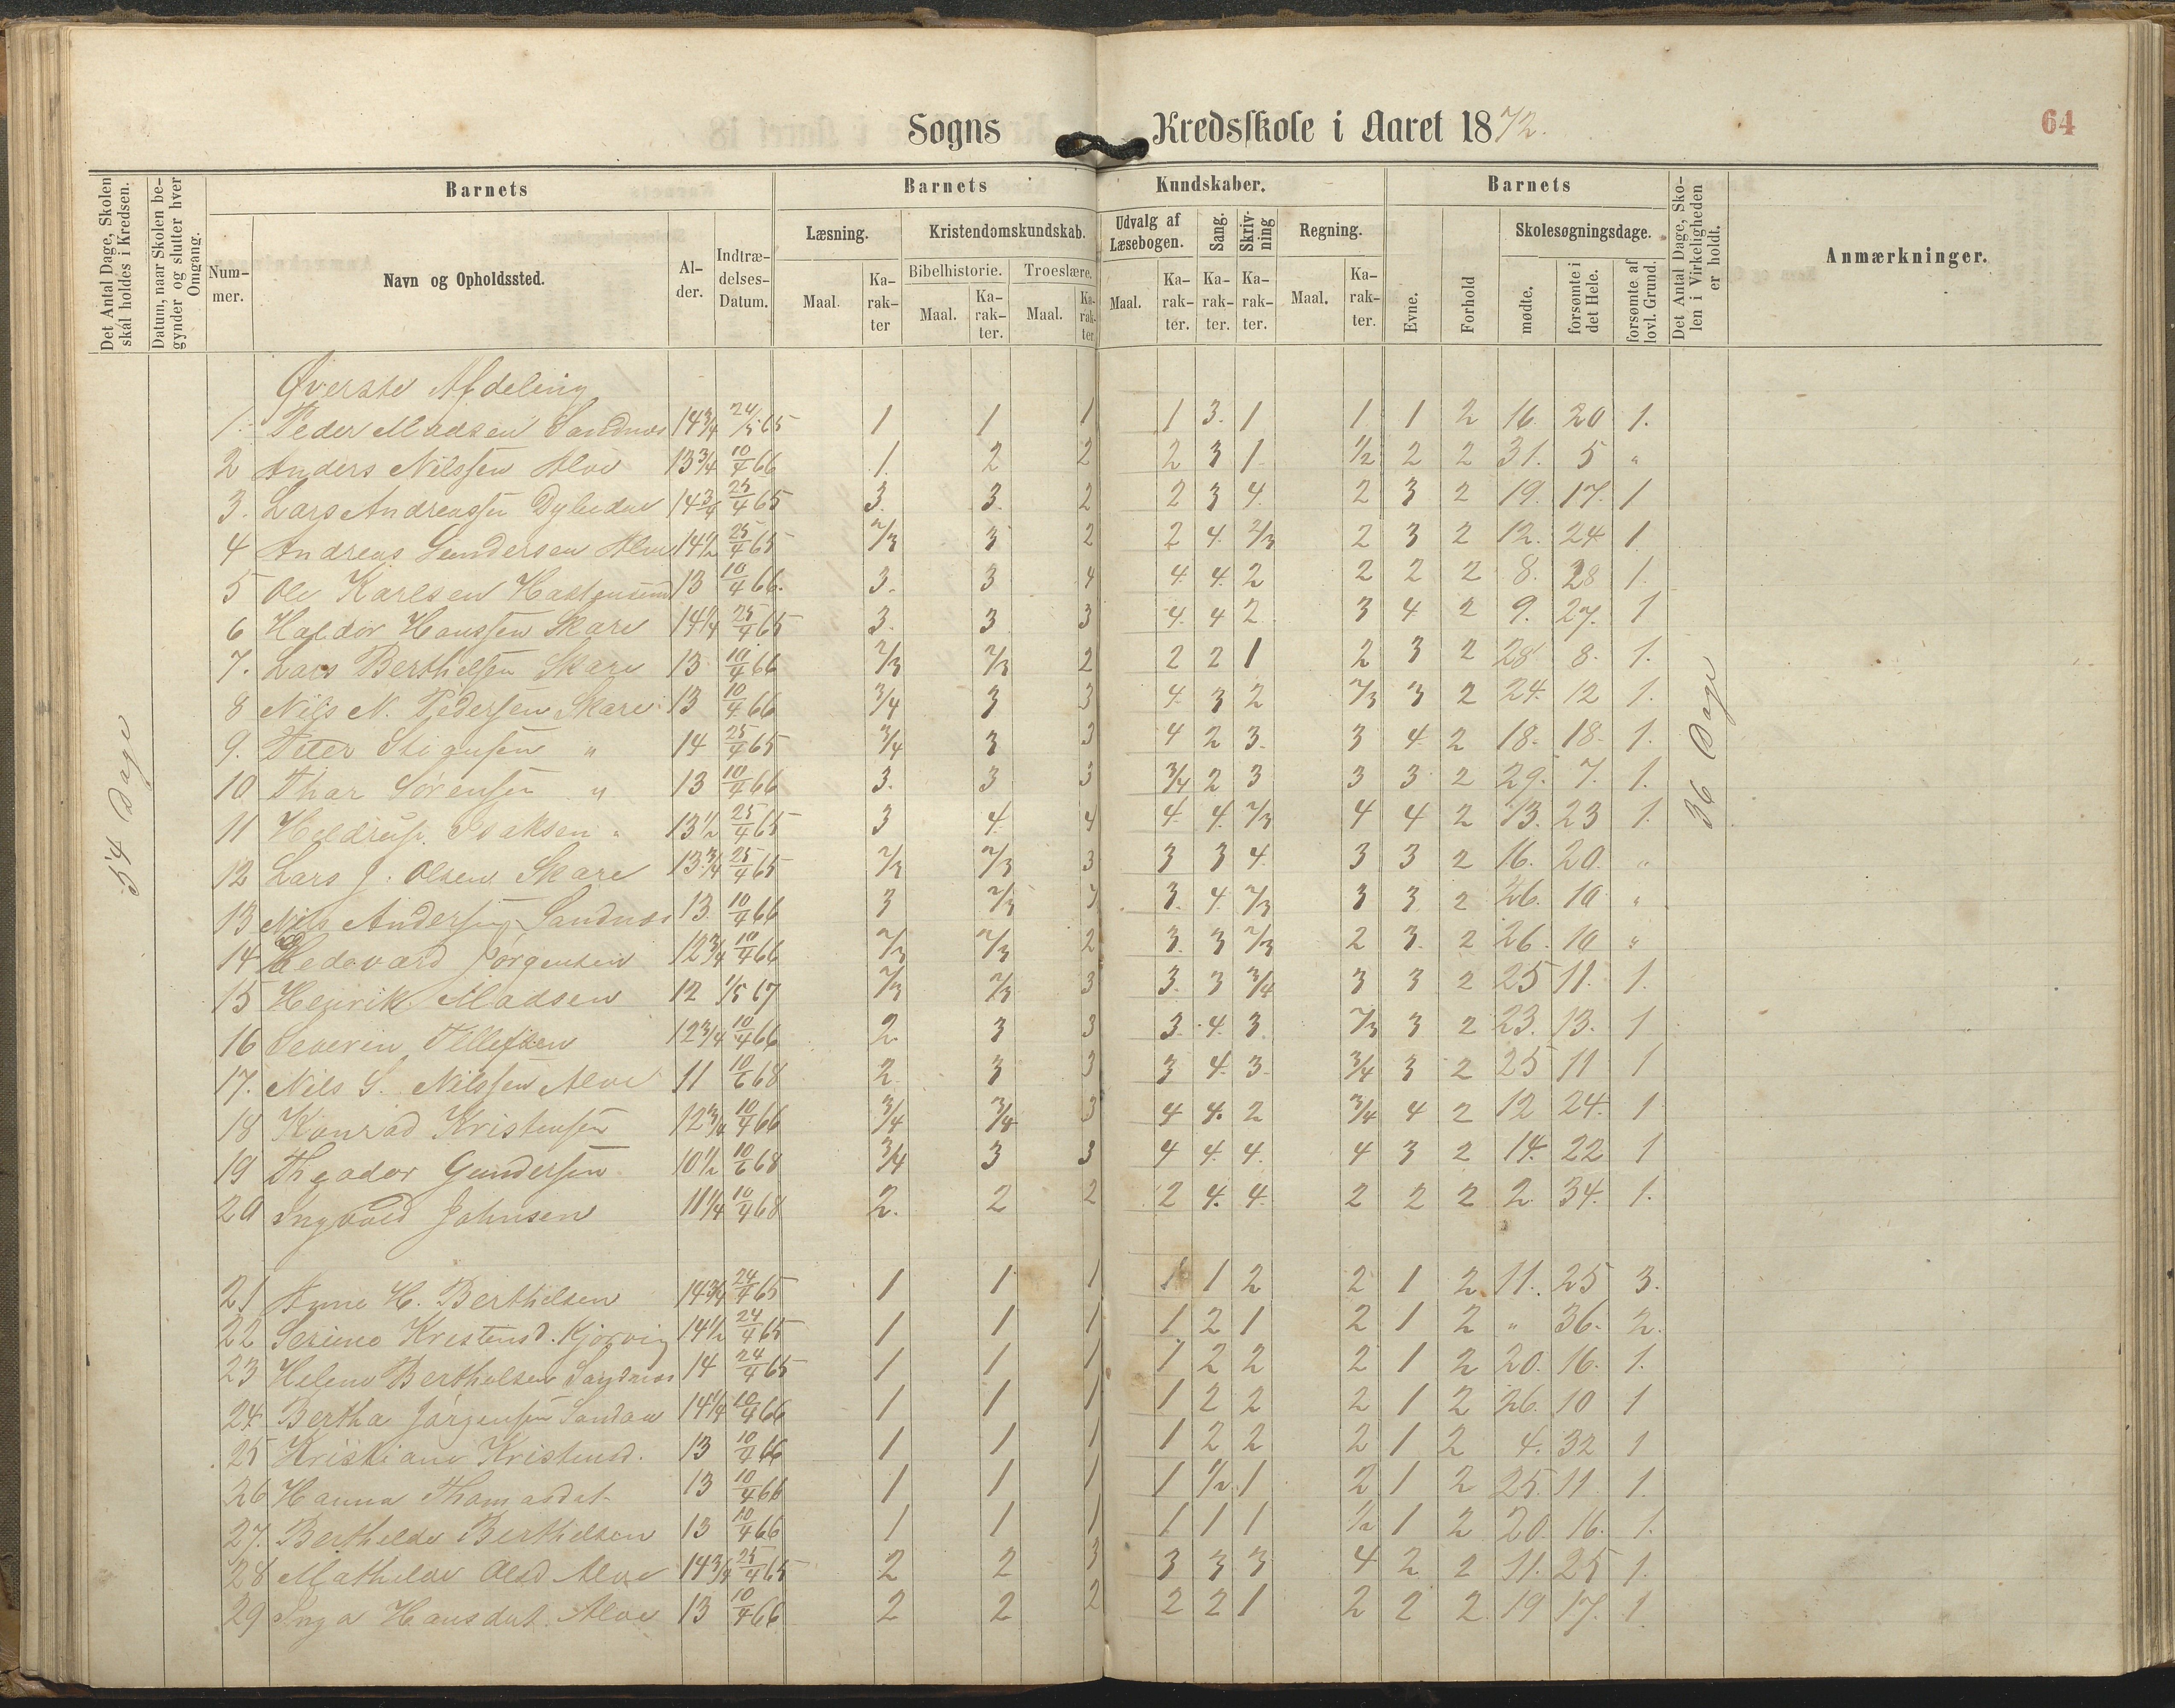 Sogns Kredsskole i Aaret 1872. 64
Det Antal Dage, Skolen skal holdes i Kredsen.
Datum, naar Skolen begynder og slutter hver Omgang.
Barnets
Num-mer.
Navn og Opholdssted.
Al-der.
Indtræ-delses-Datum.
Barnets Kundskaber.
Læsning.
Maal.
Ka-rak-ter
Kristendomskundskab.
Bibelhistorie.
Maal.
Ka-rak-ter.
Troeslære.
Maal.
Ka-rak-ter
Udvalg af Læsebogen.
Maal.
Ka-rak-ter.
Sang.
Ka-rak-ter.
Skriv-ning
Ka-rak-ter.
Regning.
Maal.
Ka-rak-ter.
Barnets
Evne.
Forhold
Skolesøgningsdage.
mødte.
forsømte i det Hele.
forsømte af lovl. Grund.
Det Antal Dage, Sko-len i Virkeligheden er holdt.
Anmærkninger.
54 Dage
36 Dage
Øverste Afdeling
1. Peder Madsen Sandnæs 14 3/4 24/5 65 1 1 1 1 3. 1 1 1 2 16. 20 1.
2 Anders Nilssen Alve 13 3/4 10/4 66 1. 2 2 2 3 1 1/2 2 2 31. 5 "
3. Lars Andreassen 14 3/4 25/4 65 3. 3. 2 2 3 4. 2 3 2 19. 17. 1
4 Andreas Gundersen Alve 14 1/2 25/4 65 2/3 3 2 2 4. 2/3 2 3 2 12. 24 1
5 Ole Karlsen 13 10/4 66. 3. 3 4 4. 4. 2 2 2 2 8. 28 1.
6 Haldor Hanssen Skare 14 1/4 25/4 65 3. 3 3 4. 4 2 3 4 2 9. 27. 1
7. Lars Berthelsen Skare 13 10/4 66 2/3 2/3 2 2 2 1 2 3 2 28 8. 1.
8 Nils N. Pedersen Skare 13 10/4 66 3/4 3 3 4. 3 2 2/3 3 2 24. 12 1.
9. Peter " 14 25/4 65 3/4 3 3 4 2 3. 3 4. 2 18. 18. 1.
10 Thar Sörensen " 13 10/4 66 3. 3 3 3/4 2 3 3 3 2 29. 7. 1.
11 Isaksen " 13 1/2 25/4 65 3 4. 4 4. 4. 2/3 4 4 2 13. 23 1.
12 Lars J. Olsen Skare 13 3/4 25/4 65 2/3 2/3 3 3 3 4. 3 3 2 16. 20. "
13 Nils Andersen Sandnæs 13 10/4 66 3 2/3 3 3. 4. 2/3 3 3 2 26. 10 "
14 Jørgensen 12 3/4 10/4 66 2/3 2/3 2 3. 3 2/3 2 3. 2 26. 10 "
15 Henrik Madsen 12 1/5 67 2/3 2/3 3 3. 3 3/4 3 3 2 25 11. 1.
16 Severin Tellefsen 12 3/4 10/4 66 2. 3 3 3. 4. 3. 2/3 3 2 23. 13. 1
17. Nils S. Nilssen Alve 11 10/6 68 2. 3 3 3 4. 3. 3/4 3 2 25 11 1
18 Konrad Kristensen 12 3/4 10/4 66 3/4 3/4 3 4 4. 2 3/4 4 2 12 24. 1
19 Theador Gundersen 10 1/2 10/6 68 3/4 3 3 4 4. 4. 4 3 2 14. 22 1
20 Ingvald Johnsen 11 1/4 10/4 68 2. 2 2 2 4. 4. 2 2 2 2. 34. 1.
21 Anne H. Berthelsen 14 3/4 24/4 65 1 1 1 1 1 2 2 1 2 11. 25 3.
22 Serine Kristensd. Kjørvig 14 1/2 24/4 65 1 1 1 1 2 1 2 1 2 " 36. 2.
23 Helene Berthelsen Sandnæs 14 24/4 65 1 1 1 1 2 2 2 1 2 20. 16. 1.
24. Bertha Jørgensen 14 1/4 10/4 66 1 1 1 1 2 2 2 1 2 26. 10 1
25 Kristiane Kristensd. 13 10/4 66 1 1 1 1 2 2 2 1 2 4. 32 1
26 Hanna Thomasdat. 13 10/4 66 1 1 1 1 1/2 1 2 1 2 25. 11. 1.
27. Berthelde Berthelsen 13 10/4 66 1 1 1 1 1 1 1/2 1 2 20. 16. 1.
28 Mathilde Olsd Alve 14 3/4 25/4 65 2 2 3 3 3 3 4 2 2 11. 25 1.
29 Inga Hansdat. Alve 13 10/4 66 2 2 2 2 2 1 2 2 2 19 17. 1